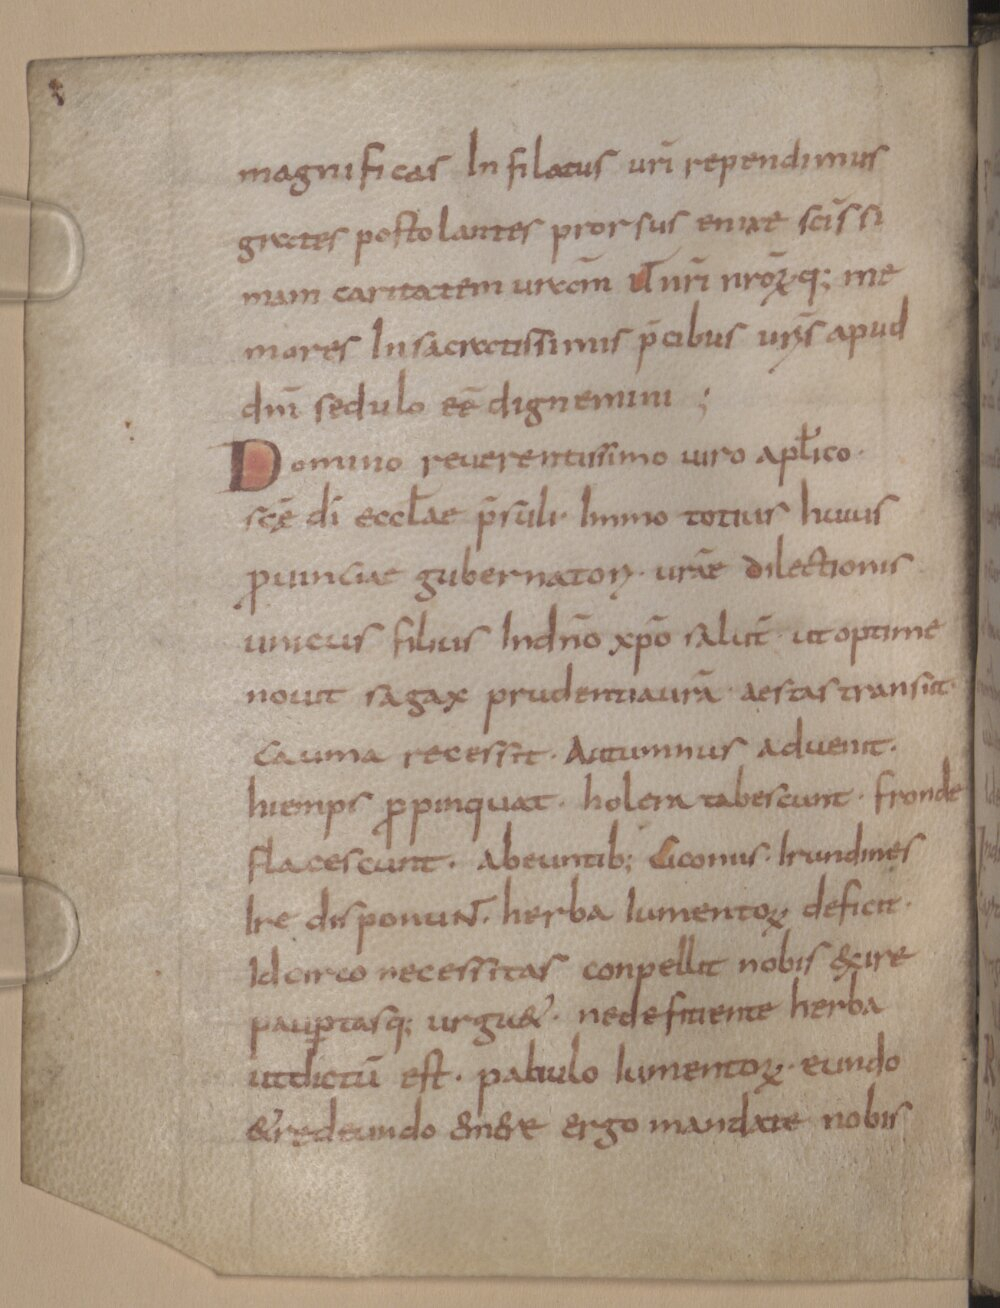 magnificas In filatus ur̄i rependimus
grates postolantes prorsus enixe sc̄issi
mam caritatem uram̄ ut nr̄i nroꝝ̄q; me
mores In sacratissimis p̄cibus ur̄is apud
dn̄m sedulo eē dignemini ;
Domino reuerentissimo uiro apl̄ico·
sc̄ę dī eccl̄ae p̄suli· Immo totius huius
ꝓuinciae gubernatori· urāe dilectionis
unicus filius In dn̄o xp̄o salut̄· ut optime
nouit sagax prudentia urā· aestas transiit·
Cauma recessit· Autumnus aduenit·
hiemps ꝓpinquat· holera tabescunt· fronde
flacescunt· Abeuntib; Ciconiis· Irundines
Ire disponunt· herba Iumentoꝝ deficit·
Idcirco necessitas conpellit nobis &xire
pauꝑtasq; urgu&· ne deficiente herba
ut dictū est· pabulo Iumentoꝝ· eundo
& redeundo &n&e ergo mandate nobis